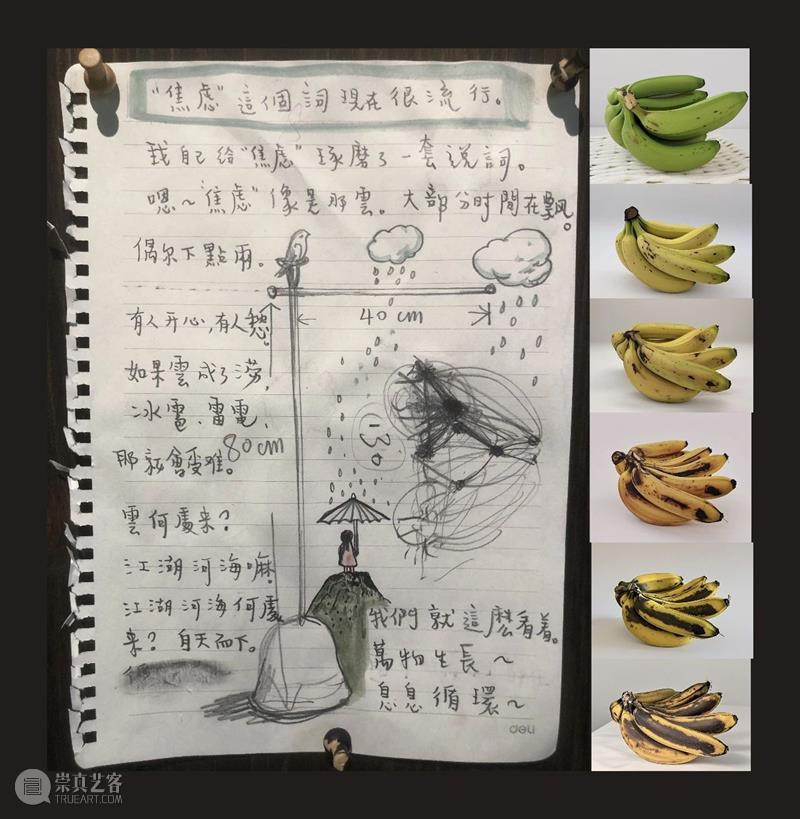 “焦虑”這個詞現在很流行。
我自己给“焦虑”琢磨了一套说詞。
嗯～“焦虑”像是那雲。大部分时間在飘。
偶尔下點雨。
40 cm
有人开心,有人愁。
如果雲成了涝,
冰雹、雷電,
那就會变难。
80cm
130
雲何處来?
江湖河海嘛。
江湖河海何處
来? 自天而下。
我們就這麽看着。
萬物生長～
息息循環～
deli
崇真艺客
TRUEART.COM